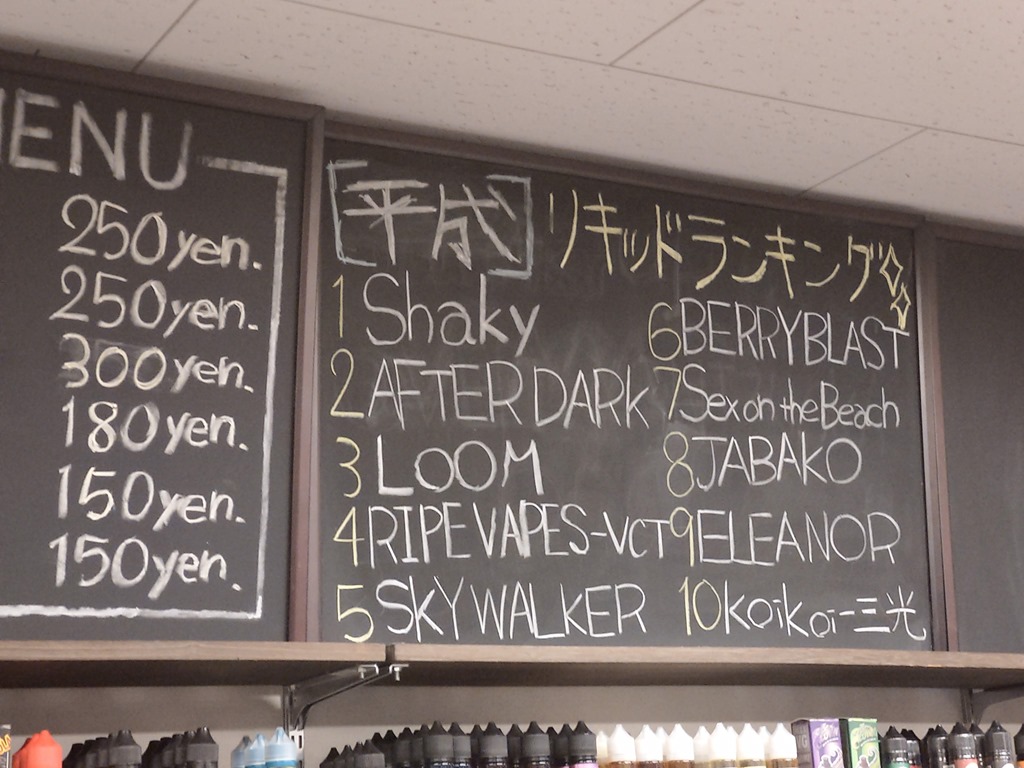 MENU
250yen.
250yen.
300yen.
180yen.
150yen.
150yen.
[平成] リキッドランキング
1 Shaky
2 AFTER DARK
3 LOOM
4 RIPE VAPES-VCT
5 SKYWALKER
6 BERRY BLAST
7 Sex on the Beach
8 JABAKO
9 ELEANOR
10 KoiKoi-三光